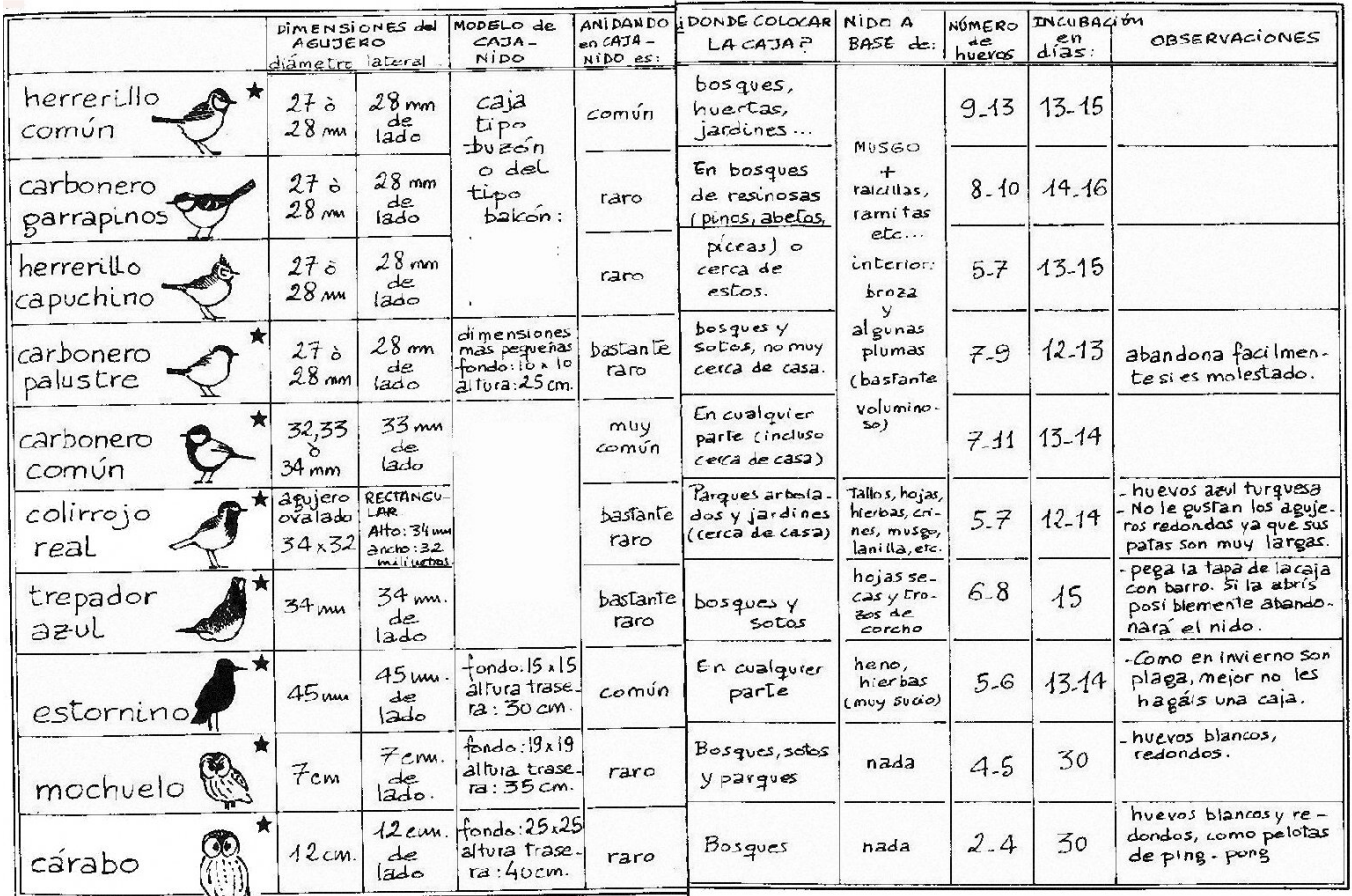 DIMENSIONES del AGUJERO
diámetro lateral
MODELO de CAJA-NIDO
ANIDANDO en CAJA-NIDO es:
¿DONDE COLOCAR LA CAJA?
NIDO A BASE de:
NÚMERO de huevos
INCUBACIÓN en días:
OBSERVACIONES
herrerillo
común
27 ò
28 mm
28 mm
de
lado
caja
tipo
buzón
o del
tipo
balcón:
común
bosques,
huertas,
jardines...
MUSGO
+
raicillas,
ramitas
etc...
interior:
broza
y
algunas
plumas
(bastante
volumino-
so)
9-13
13-15
carbonero
garrapinos
27 ò
28 mm
28 mm
de
lado
raro
En bosques
de resinosas
(pinos, abetos,
píceas) o
cerca de
estos.
8-10
14-16
herrerillo
capuchino
27 ò
28 mm
28 mm
de
lado
raro
5-7
13-15
carbonero
palustre
27 ò
28 mm
28 mm
de
lado
dimensiones
mas pequeñas
fondo: 10 x 10
altura: 25 cm.
bastante
raro
bosques y
sotos, no muy
cerca de casa.
7-9
12-13
abandona facilmen-
te si es molestado.
carbonero
común
32,33
ò
34 mm
33 mm
de
lado
muy
común
En cualquier
parte (incluso
cerca de casa)
7-11
13-14
colirrojo
real
agujero
ovalado
34x32
RECTANGU-
LAR
Alto: 34 mm
ancho: 32
milimetros
bastante
raro
Parques arbola-
dos y jardines
(cerca de casa)
Tallos, hojas,
hierbas, cri-
nes, musgo,
lanilla, etc.
5-7
12-14
- huevos azul turquesa
- No le gustan los aguje-
ros redondos ya que sus
patas son muy largas.
trepador
azul
34 mm
34 mm.
de
lado
bastante
raro
bosques y
sotos
hojas se-
cas y tro-
zos de
corcho
6-8
15
- pega la tapa de la caja
con barro. Si la abrís
posiblemente abando-
nará el nido.
estornino
45 mm
45 mm.
de
lado
fondo: 15x15
altura trase-
ra: 30 cm.
común
En cualquier
parte
heno,
hierbas
(muy sucio)
5-6
13-14
- Como en invierno son
plaga, mejor no les
hagáis una caja.
mochuelo
7cm
7cm.
de
lado.
fondo: 19x19
altura trase-
ra: 35 cm.
raro
Bosques, sotos
y parques
nada
4-5
30
- huevos blancos,
redondos.
cárabo
12 cm.
12 cm.
de
lado
fondo: 25x25
altura trase-
ra: 40cm.
raro
Bosques
nada
2-4
30
huevos blancos y re-
dondos, como pelotas
de ping-pong